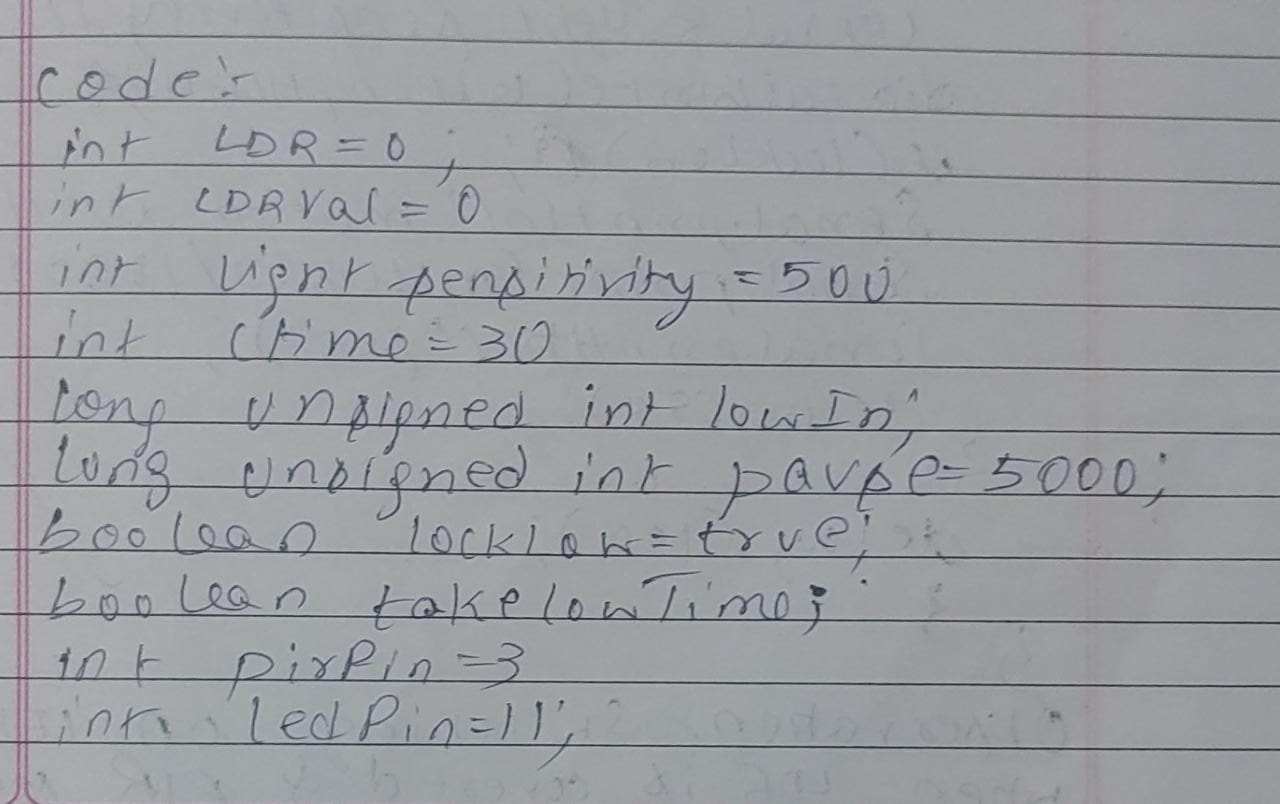 code:-
int LDR = 0;
int LDRVal = 0
int Light sensitivity = 500
int Ctime = 30
long unsigned int lowIn;
long unsigned int pause = 5000;
boolean lockLow = true;
boolean takelowTime;
int pirPin = 3
int ledPin = 11;